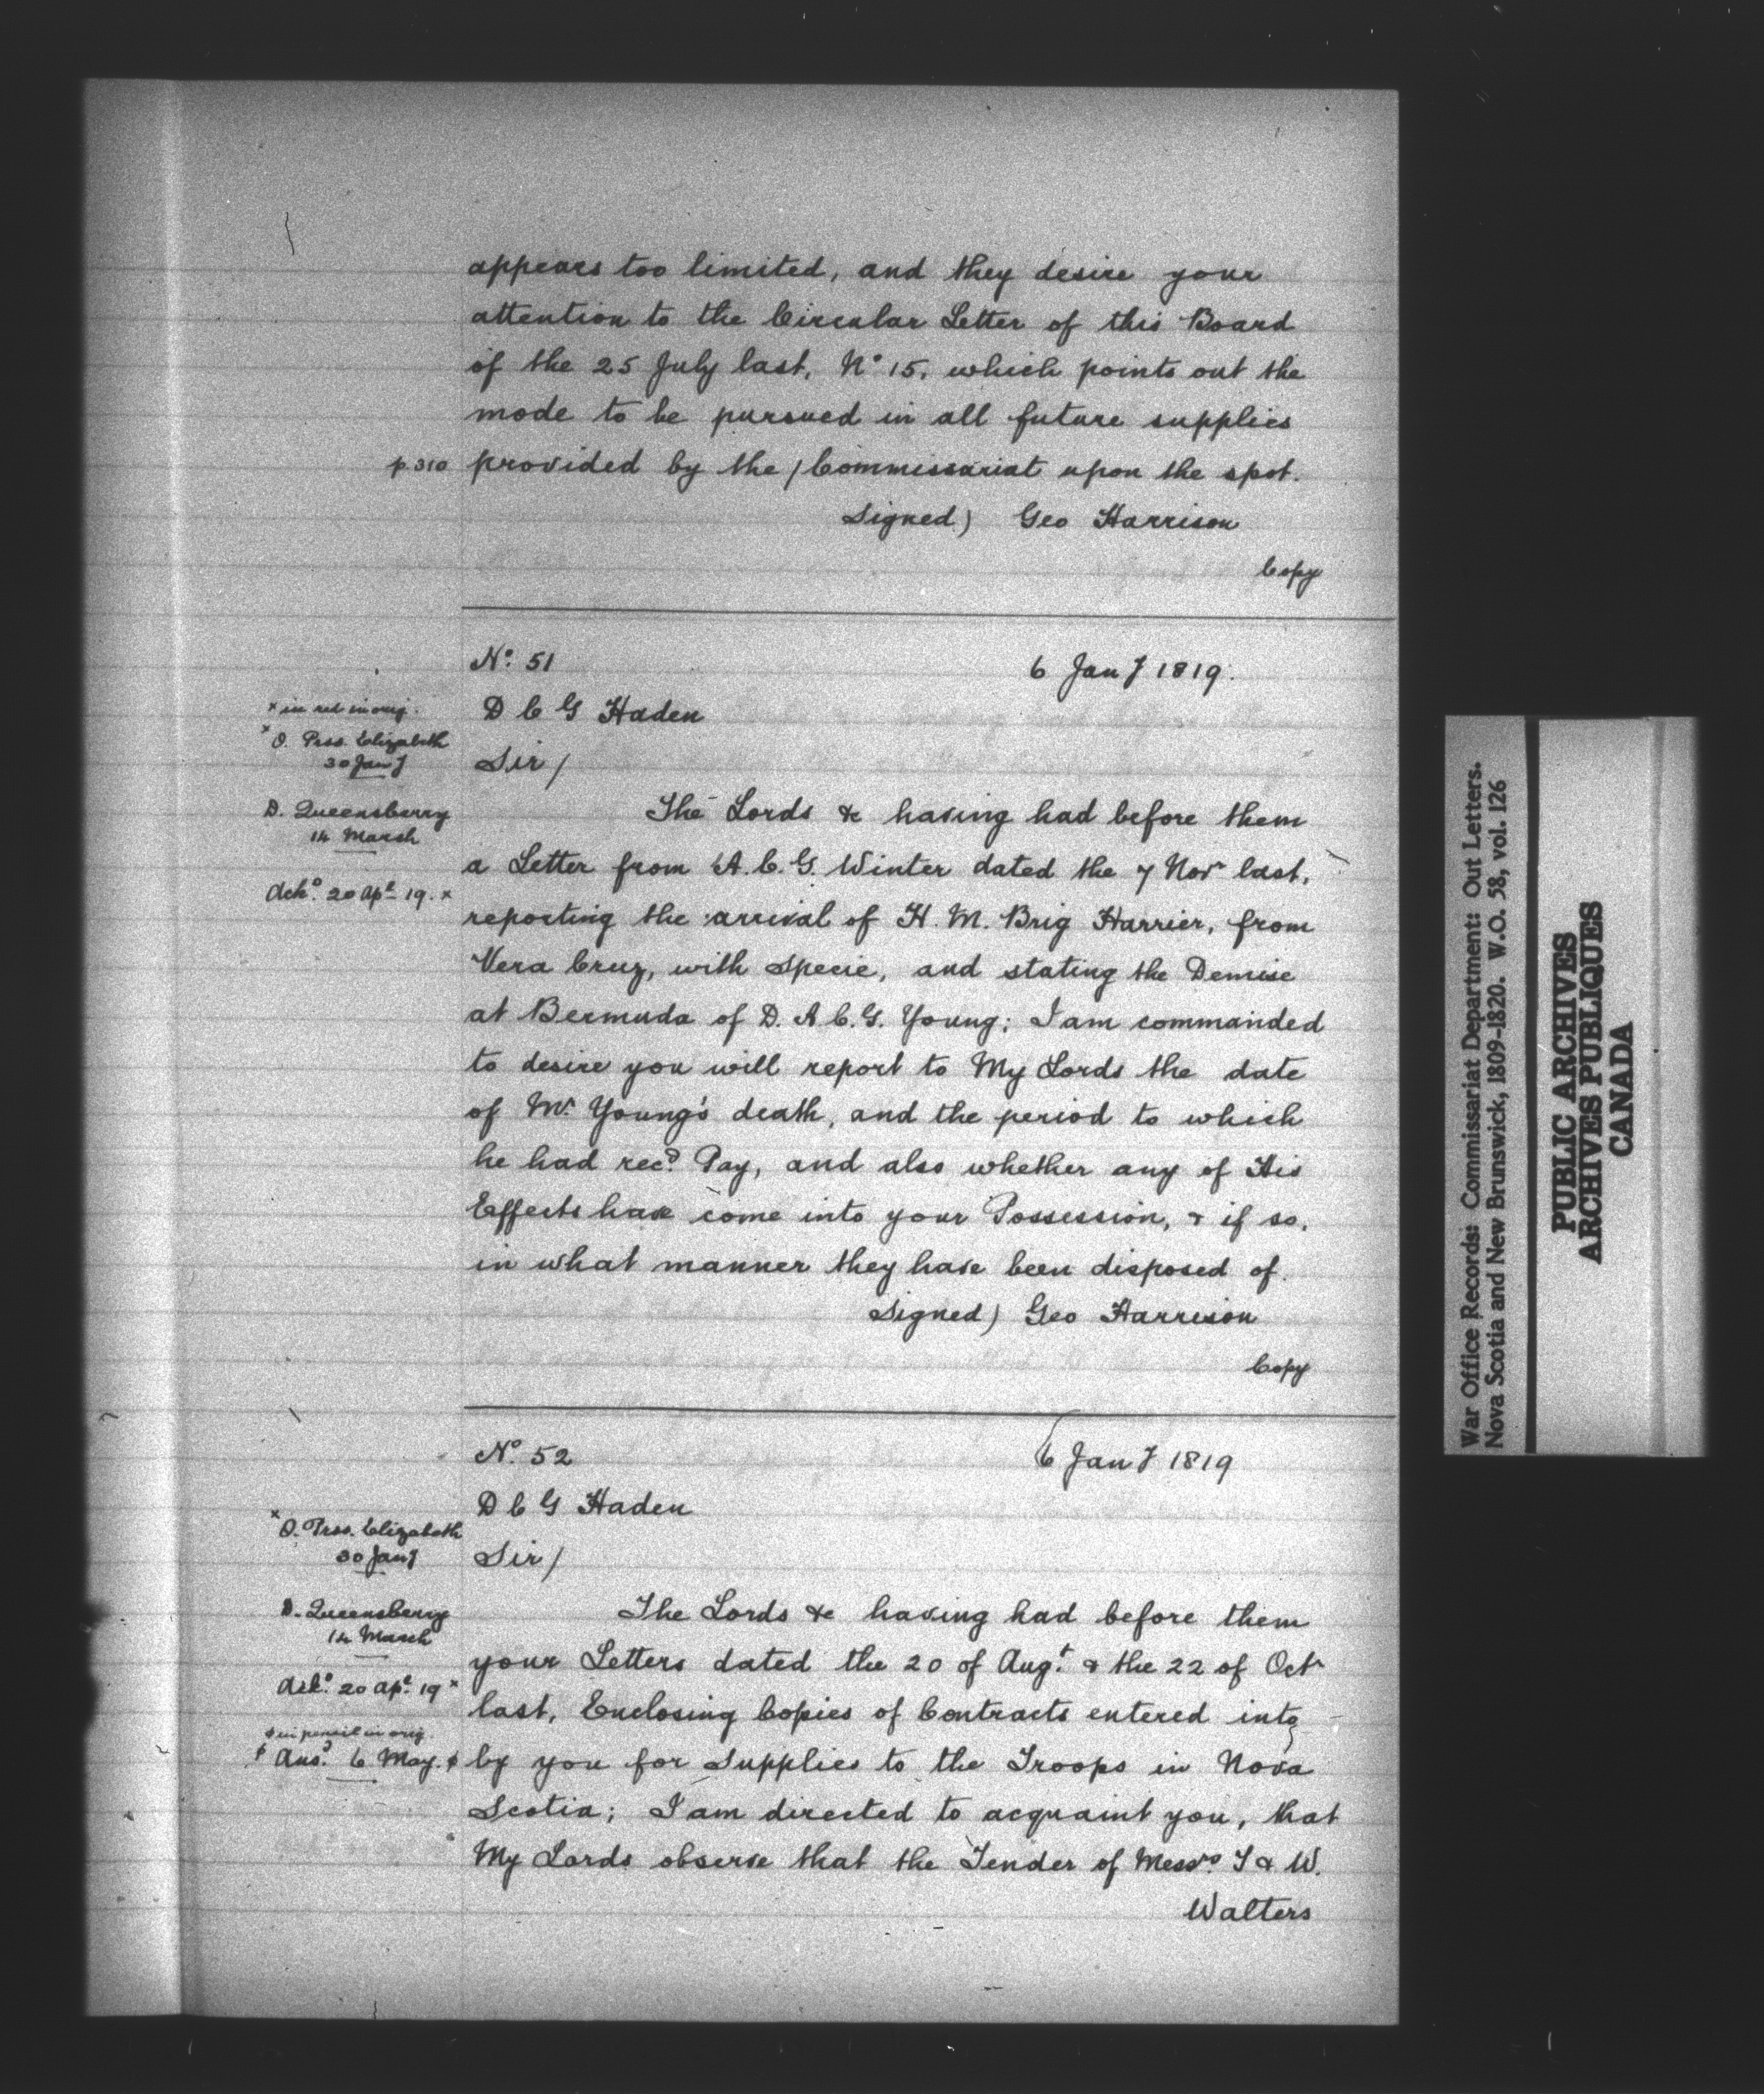 appears too limited, and they desire your
attention to the Circular Letter of this Board
of the 25 July last, No 15, which points out the
mode to be pursued in all future supplies
p. 310 provided by the / Commissariat upon the spot.
Signed) Geo Harrison
Copy
No. 51
6 Jany 1819.
x in red in orig.
D C G Haden
x O. Prss. Elizabeth
30 Jany
Sir/
D. Queensberry
14 March
The Lords &c having had before them
a Letter from A.C.G. Winter dated the 7 Novr last,
Ackd. 20 Apl 19. x
reporting the arrival of H. M. Brig Harrier, from
Vera Cruz, with Specie, and stating the Demise
at Bermuda of D. A C. G. Young; I am commanded
to desire you will report to My Lords the date
of Mr Young's death, and the period to which
he had recd. Pay, and also whether any of His
Effects have come into your Possession, & if so,
in what manner they have been disposed of.
Signed) Geo Harrison
Copy
No. 52
6 Jany 1819
D C G Haden
x O. Prss. Elizabeth
30 Jany
Sir/
D. Queensberry
14 March
The Lords &c having had before them
your Letters dated the 20 of Augt. & the 22 of Octr
Ackd. 20 Apl. 19 x
last, Enclosing Copies of Contracts entered into
in pencil in orig.
Ansd. 6 May.
by you for Supplies to the Troops in Nova
Scotia; I am directed to acquaint you, that
My Lords observe that the Tender of Messrs. T & W.
Walters
War Office Records: Commissariat Department: Out Letters.
Nova Scotia and New Brunswick, 1809-1820. W.O. 58, vol. 126
PUBLIC ARCHIVES
ARCHIVES PUBLIQUES
CANADA